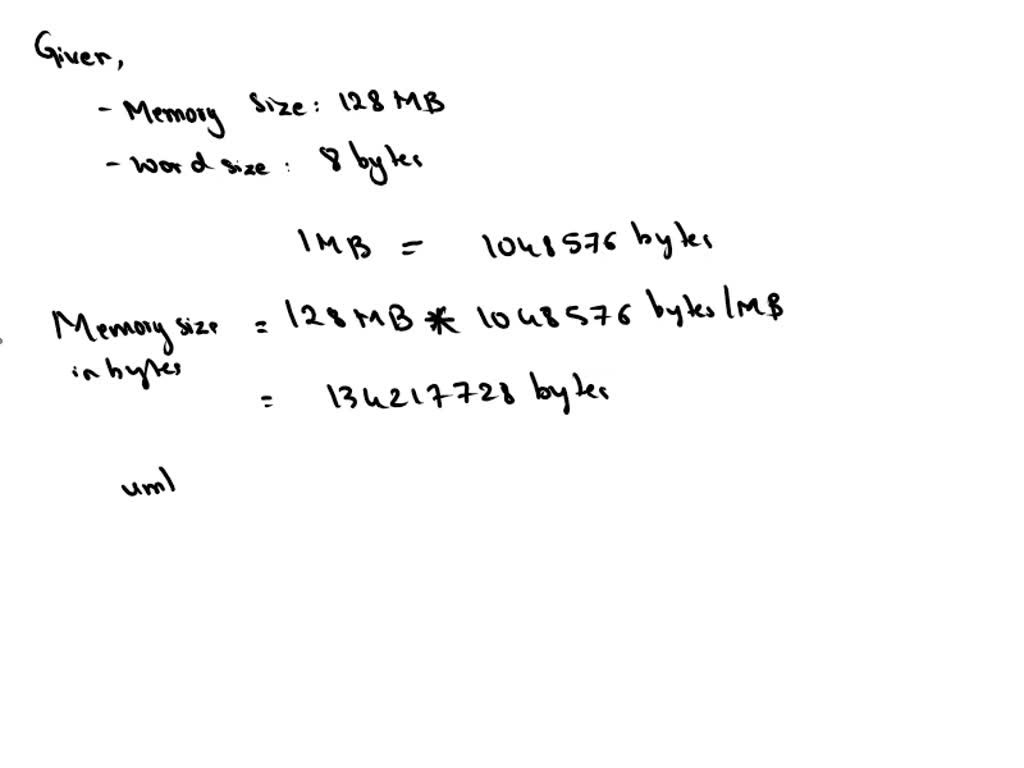 Given,
- Memory size: 128 MB
- word size: 8 bytes
1 MB = 1048576 bytes
Memory size = 128 MB * 1048576 bytes/MB
in bytes
= 134217728 bytes